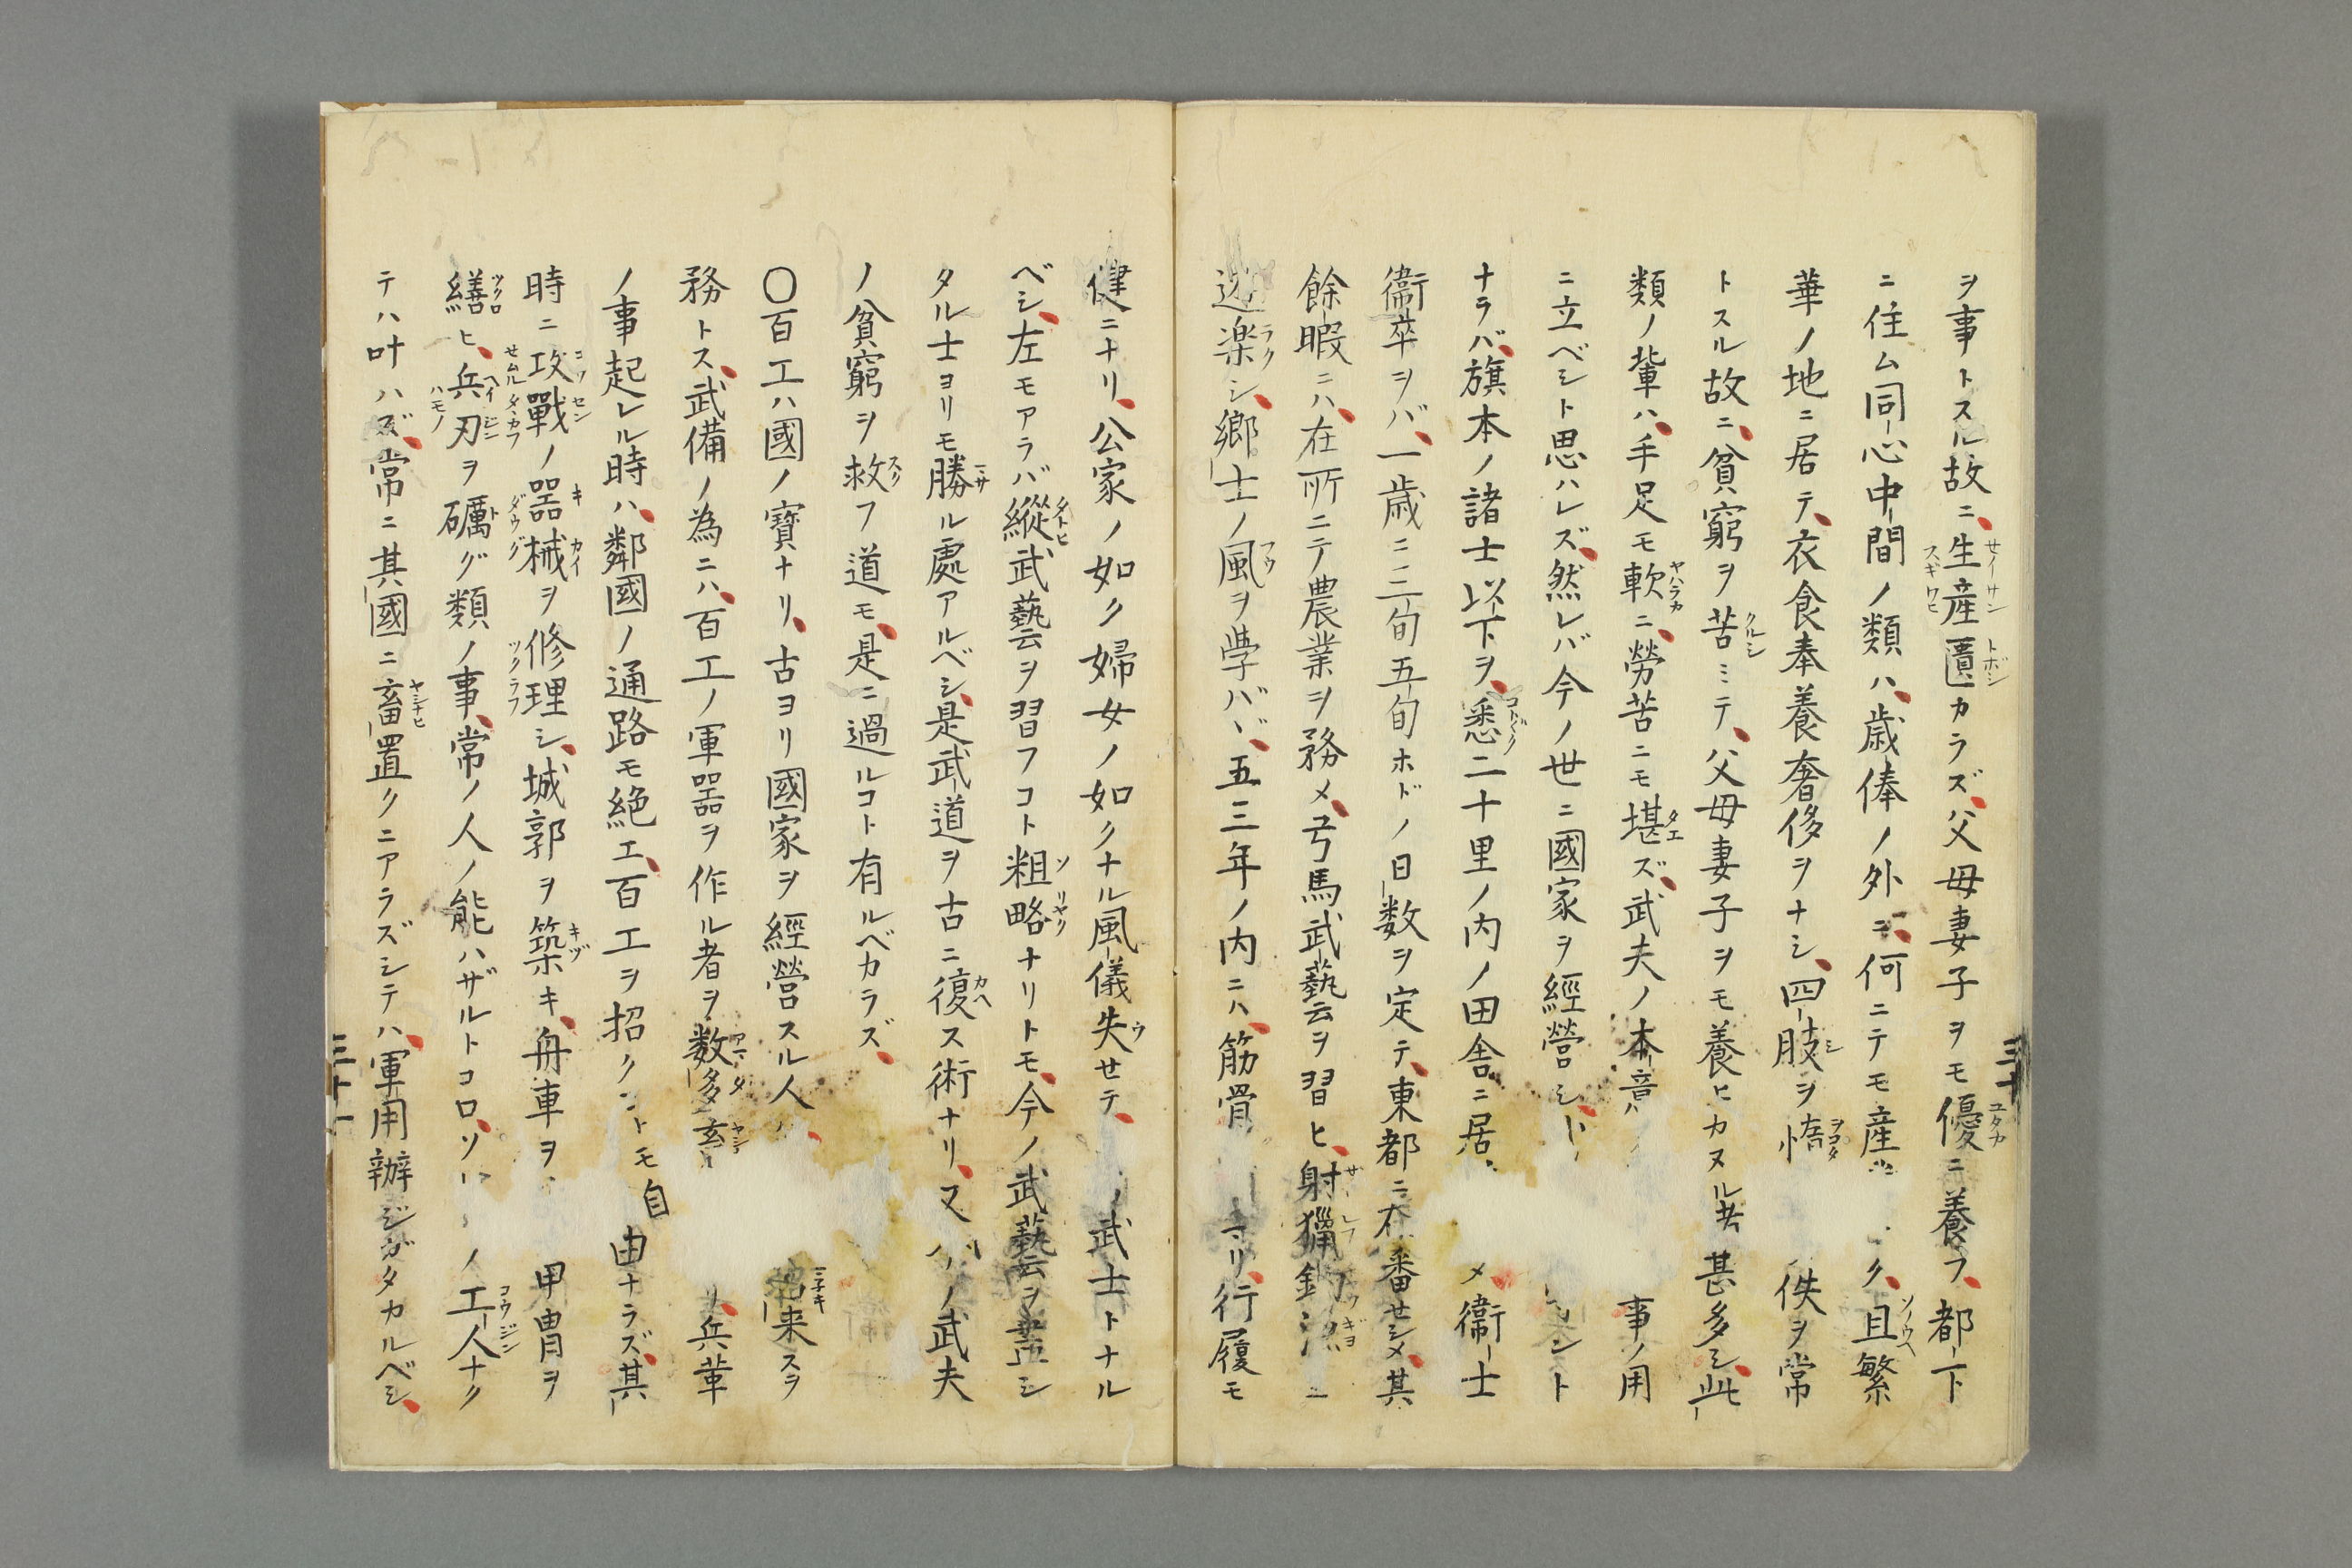 ヲ事トスル故ニ、生産匱カラズ、父母妻子ヲモ優ニ養フ、都下
ニ住ム同心中間ノ類ハ、歳俸ノ外ニ、何ニテモ産 ク、且繁
華ノ地ニ居テ、衣食奉養奢侈ヲナシ、四肢ヲ惰 佚ヲ常
トスル故ニ、貧窮ヲ苦ミテ、父母妻子ヲモ養ヒカヌル者甚多シ、此
類ノ輩ハ、手足モ軟ニ、勞苦ニモ堪ズ、武夫ノ本意 事ノ用
ニ立ベシト思ハレズ、然レバ今ノ世ニ國家ヲ經營シ、 ント
ナラバ、旗本ノ諸士以下ヲ、悉二十里ノ内ノ田舎ニ居 メ、衞士
衞卒ヲバ、一歳ニ三旬五旬ホドノ日数ヲ定テ、東都ニ在番セシメ、其
餘暇ニハ、在所ニテ農業ヲ務メ、弓馬武藝ヲ習ヒ、射獵釣漁ニ
遊楽シ、郷士ノ風ヲ学バヾ、五三年ノ内ニハ、筋骨 リ、行履モ
三十
健ニナリ、公家ノ如ク婦女ノ如クナル風儀失セテ、 ノ武士トナル
ベシ、左モアラバ縱武藝ヲ習フコト粗略ナリトモ、今ノ武藝ヲ シ
タル士ヨリモ勝ル處アルベシ、是武道ヲ古ニ復ス術ナリ、又 ノ武夫
ノ貧窮ヲ救フ道モ、是ニ過ルコト有ルベカラズ、
〇百工ハ國ノ寶ナリ、古ヨリ國家ヲ經營スル人ハ、 来スヲ
務トス、武備ノ為ニハ、百工ノ軍器ヲ作ル者ヲ数多 リ、兵革
ノ事起レル時ハ、鄰國ノ通路モ絶エ、百工ヲ招クントモ自由ナラズ、其
時ニ攻戰ノ器械ヲ修理シ、城郭ヲ築キ、舟車ヲ 甲冑ヲ
繕ヒ、兵刃ヲ礪グ類ノ事、常ノ人ノ能ハザルトコロ、ソ ノ工人ナク
テハ叶ハズ、常ニ其國ニ畜置クニアラズシテハ、軍用辦ジガタカルベシ、
三十一